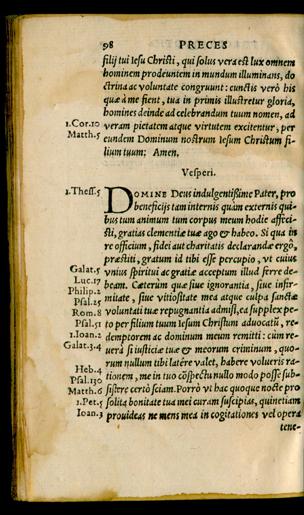 98 PRECES
filij tui Iesu Christi, qui solus vera est lux omnem
hominem prodeuntem in mundum illuminans, do
ctrina ac voluntate congruunt: cunctis verò his
quæ à me fient, tua in primis illustretur gloria,
homines deinde ad celebrandum tuum nomen, ad
1.Cor.10 veram pietatem atque virtutem excitentur, per
Matth.5 eundem Dominum nostrum Iesum Christum fi-
lium tuum: Amen.
Vesperi.
1.Thess.5 DOMINE Deus indulgentißime Pater, pro
beneficijs tam internis quàm externis qui-
bus tum animum tum corpus meum hodie affeci-
sti, gratias clementiæ tuæ ago & habeo. Si qua in
re officium, fidei aut charitatis declarandæ ergò,
præstiti, gratum id tibi esse percupio, vt cuius
Galat.5 vnius spiritui ac gratiæ acceptum illud ferre de-
Luc.17 beam. Cæterum quæ siue ignorantia, siue infir-
Philip.2 mitate, siue vitiositate mea atque culpa sanctæ
Psal.25 voluntati tuæ repugnantia admisi, ea supplex pe-
Rom.8 to per filium tuum Iesum Christum aduocatũ, re-
Psal.51 demptorem ac dominum meum remitti: cùm re-
1.Ioan.2 uera si iusticiæ tuæ & meorum criminum, quo-
Galat.3.4 rum nullum tibi latêre valet, habere volueris ra-
Heb.4 tionem, me in tuo cõspectu nullo modo posse sub-
Psal.130 sistere certò sciam. Porrò vt hac quoque nocte pro
Matth.6 solita bonitate tua mei curam suscipias, quinetiam
1.Pet.5 prouideas ne mens mea in cogitationes vel opera
Ioan.3
tene-